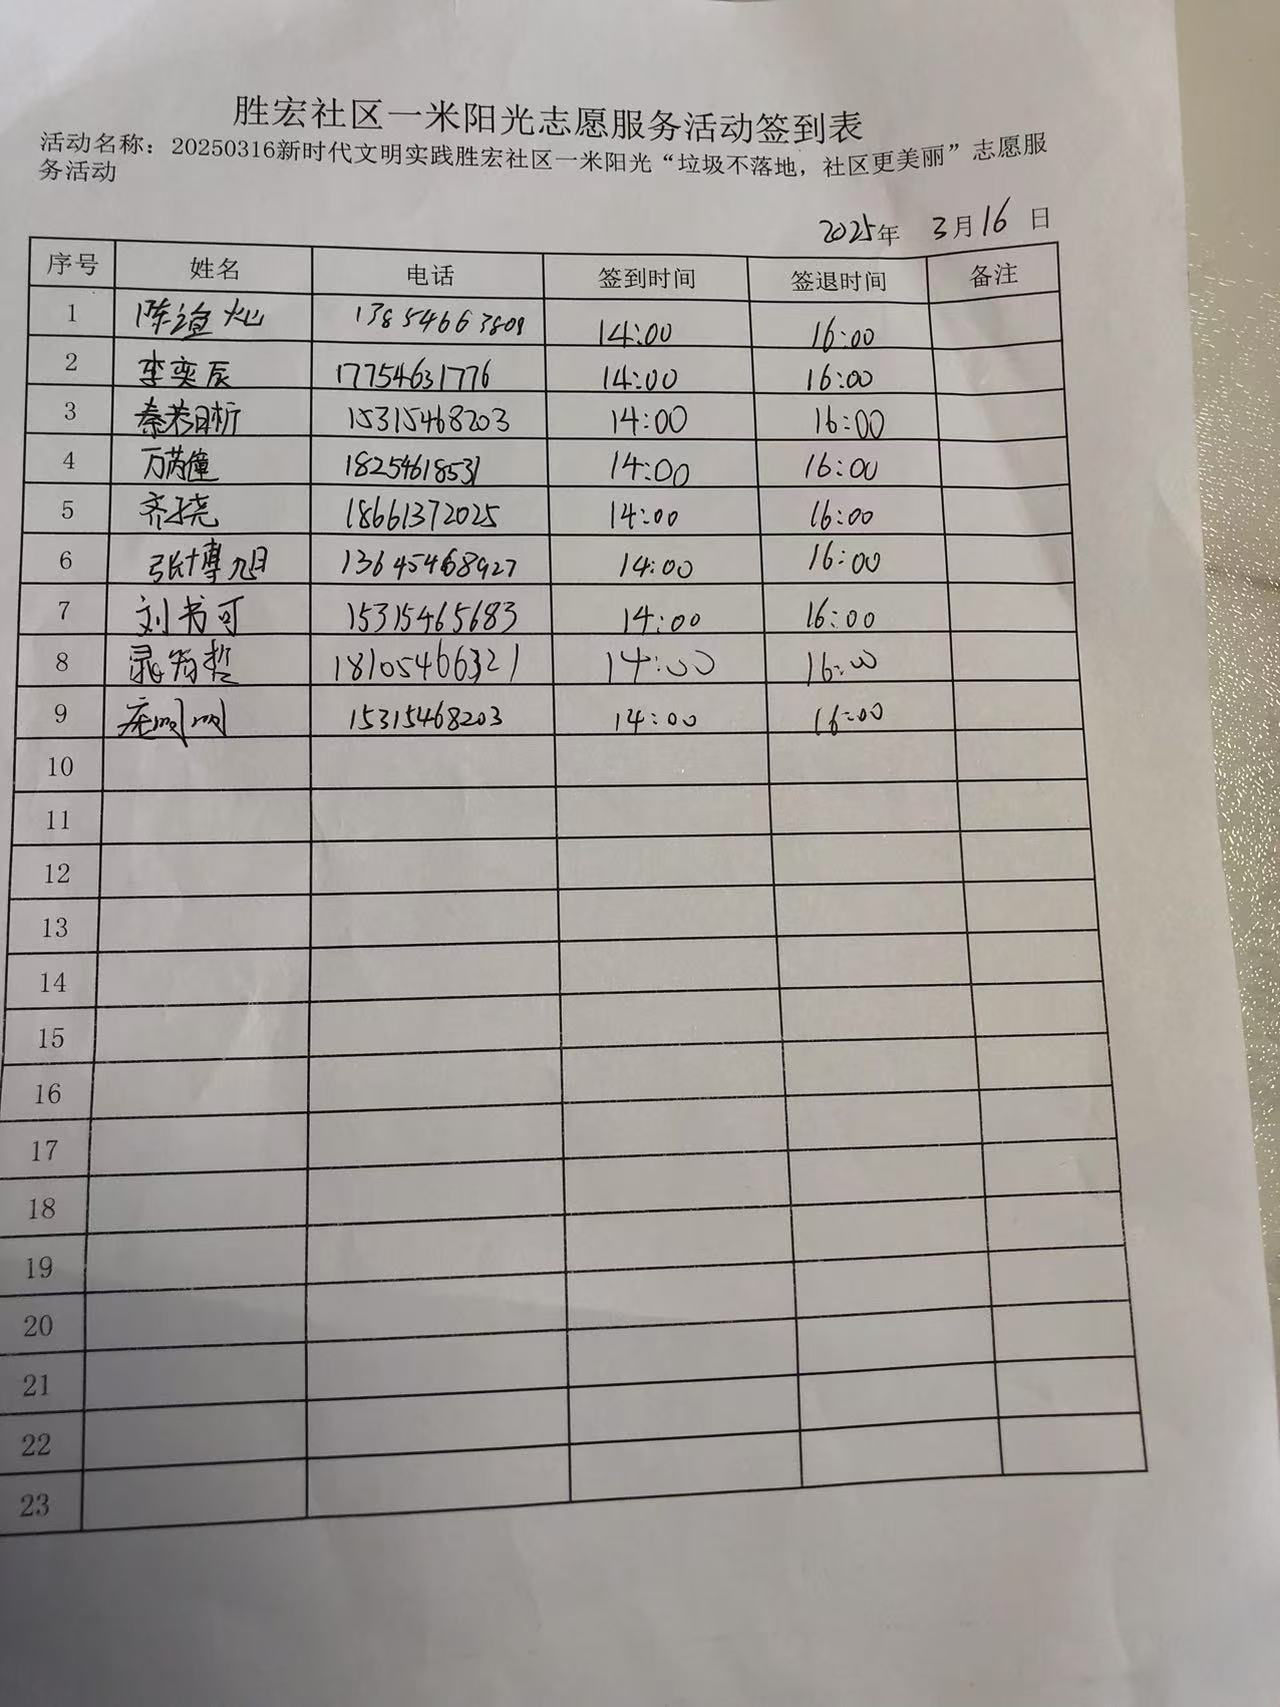 胜宏社区一米阳光志愿服务活动签到表
活动名称：20250316新时代文明实践胜宏社区一米阳光“垃圾不落地，社区更美丽”志愿服
务活动
2025年 3月16日
序号 姓名 电话 签到时间 签退时间 备注
1 陈 灿 13854663809 14:00 16:00
2 李奕辰 17754631776 14:00 16:00
3 秦若晰 15315468203 14:00 16:00
4 万芮僮 18254618531 14:00 16:00
5 齐 尧 18661372025 14:00 16:00
6 张博旭 13645468927 14:00 16:00
7 刘书可 15315465683 14:00 16:00
8 18105466321 14:00 16:00
9 15315468203 14:00 16:00
10
11
12
13
14
15
16
17
18
19
20
21
22
23